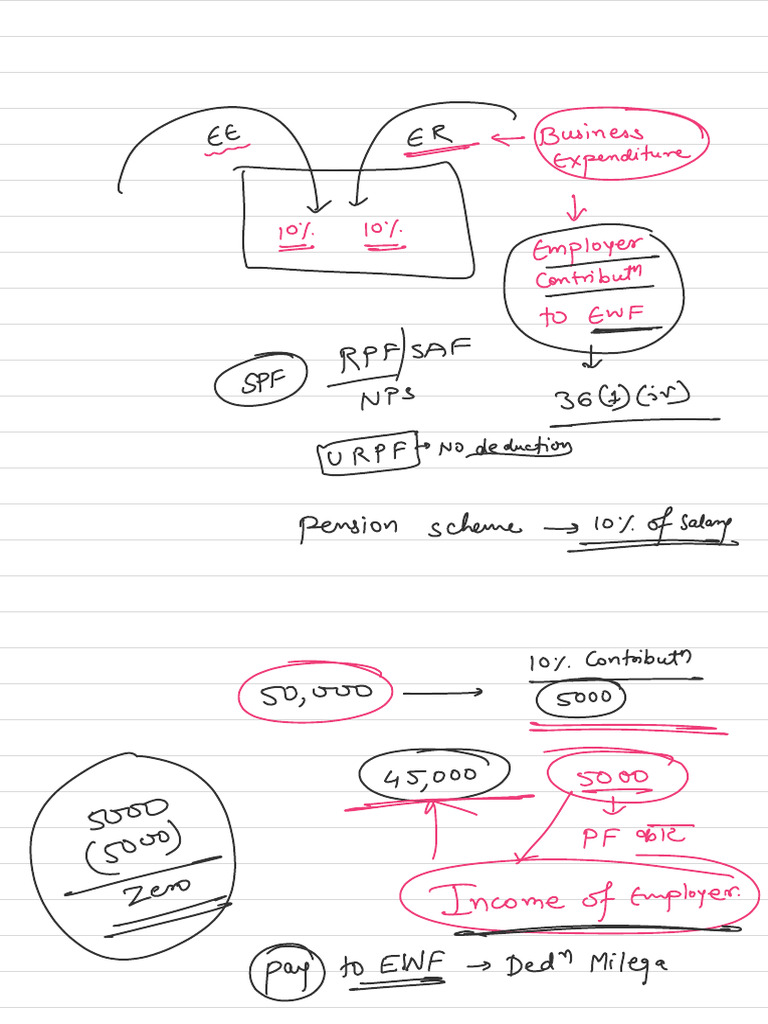 EE
ER ← Business
Expenditure
10% 10%
Employer
Contributⁿ
to EWF
SPF
RPF/SAF
NPS
36(1)(iv)
URPF → No deduction
Pension scheme → 10% of salary
10% Contributⁿ
50,000 → 5000
45,000 5000
PF
5000
(5000)
Zero
Income of Employer.
pay to EWF → Dedⁿ Milega